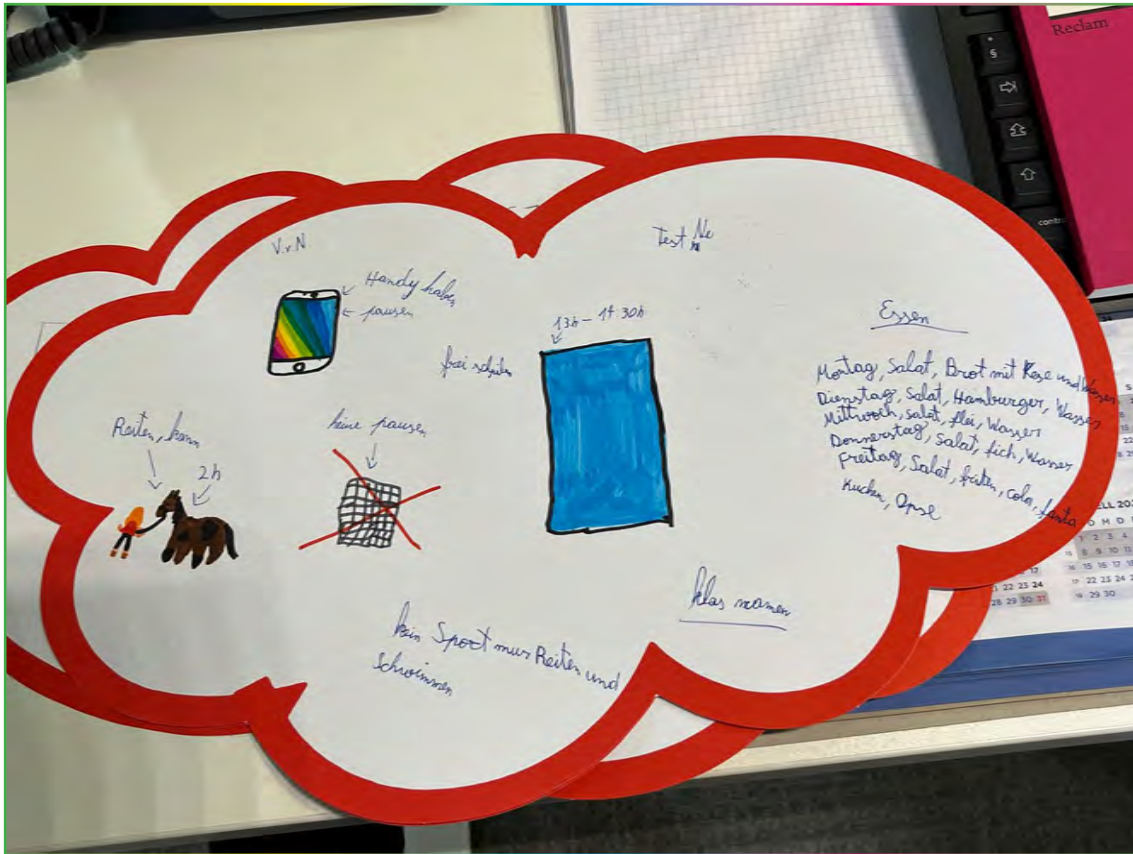 Reclam
V.v.N
Handy haben
pausen
Test Nr
13h - 14:30h
frei
Essen
Montag, Salat, Brot mit Kese und Wasser
Dienstag, Salat, Hamburger, Wasser
Mittwoch, Salat, flei, Wasser
Donnerstag, Salat, fich, Wasser
Freitag, Salat, friten, cola, fanta
Kuchen, Opse
Reiten, kann
2h
keine pausen
klas namen
kein Sport nur Reiten und
Schwimmen
control